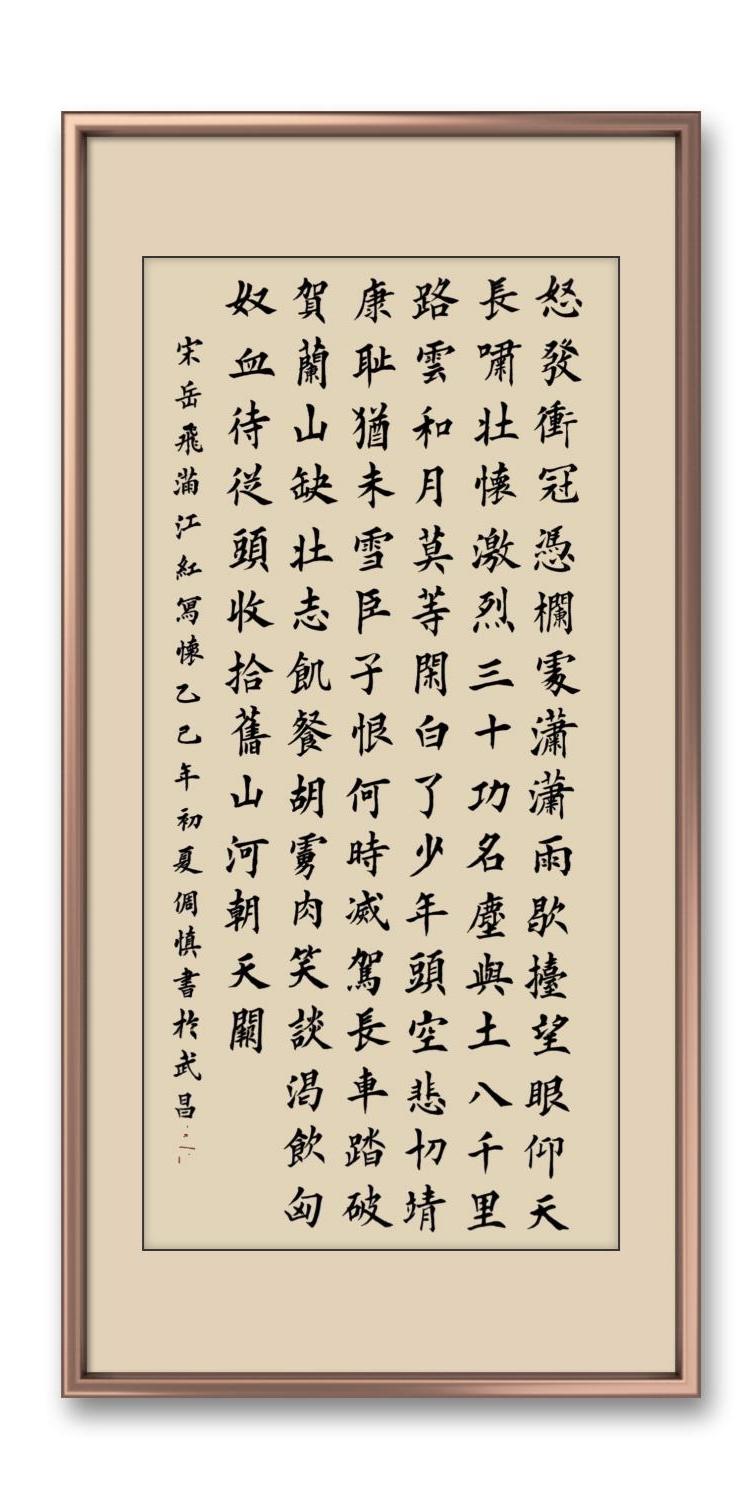 怒發衝冠憑欄處瀟瀟雨歇擡望眼仰天
長嘯壯懷激烈三十功名塵與土八千里
路雲和月莫等閑白了少年頭空悲切靖
康恥猶未雪臣子恨何時滅駕長車踏破
賀蘭山缺壯志飢餐胡虜肉笑談渴飲匈
奴血待從頭收拾舊山河朝天闕
宋岳飛滿江紅寫懷乙巳年初夏倜慎書於武昌